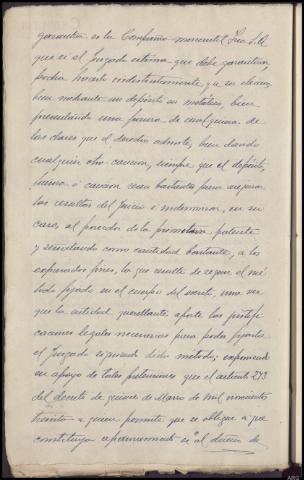 garantia es la Compañia mercantil Fred S. A
que si el Juzgado estima que debe garantizar
podra hacerlo indistintamente y a su eleccion
bien mediante un depósito en metálico, bien
presentando una fianza de cualquiera de
las clases que el derecho admite, bien dando
cualquier otra caucion, siempre que el depósito,
fianza ó caucion sean bastantes para asegurar
los resultas del juicio é indemnizar, en su
caso, al poseedor de la primitiva patente
y señalando como cantidad bastante, a los
expresados fines, la que resulte de seguir el mé
todo fijado en el cuerpo del escrito, una vez
que la entidad querellante aporte los justifi
cacion legales necesarios para poder fijarla
el Juzgado siguiendo dicho método; exponiendo
en apoyo de tales pretensiones que el articulo 273
del decreto de quince de Marzo de mil novecientos
treinta a quien permite que se obligue a que
constituya afianzamiento es "al dueño de